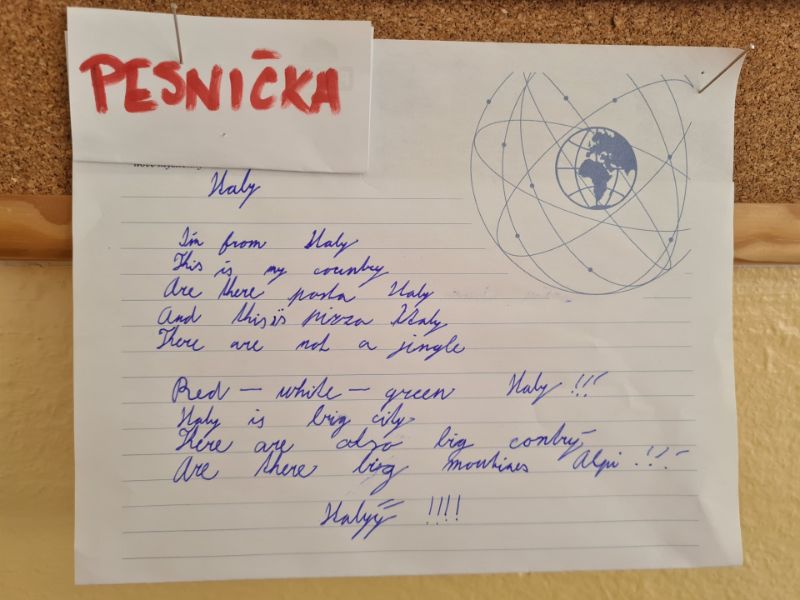 PESNIČKA
Italy
I'm from Italy
This is my country
Are there pasta Italy
And thisis pizza Italy
There are not a jingle
Red – white – green Italy !!!
Italy is big city
There are also big contry
Are there big moutines Alpi !!!
Italyý !!!!